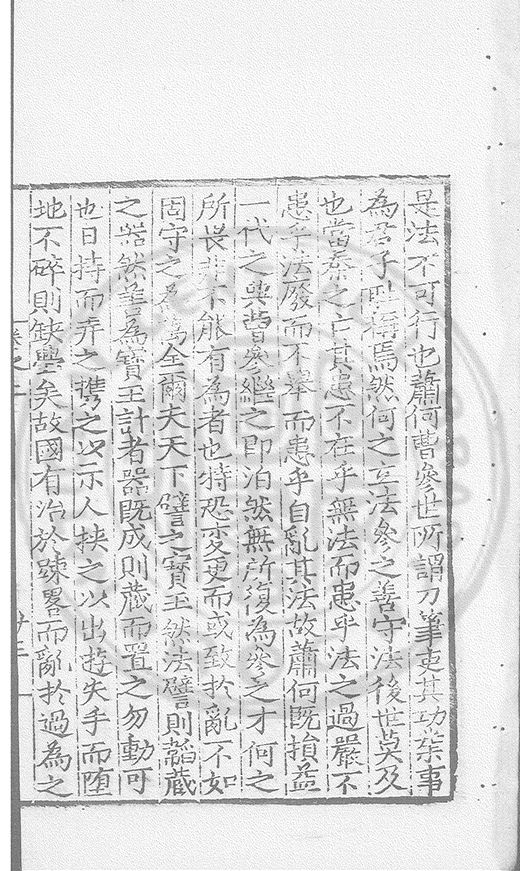 是法不可行也蕭何曹參世所謂刀筆吏其功業事
為君子所稱焉然何之立法參之善守法後世莫及
也當秦之亡其患不在乎無法而患乎法之過嚴不
患乎法廢而不舉而患乎自亂其法故蕭何既損益
一代之典曹參繼之即泊然無所復為參之才何之
所畏非不能有為者也特恐變更而或致於亂不如
固守之為萬全爾夫天下譬之寶玉然法譬則韜藏
之器然善為寶玉計者器既成則藏而置之勿動可
也日持而弄之携之以示人挾之以出遊失手而墮
地不碎則缺舋矣故國有治於踈畧而亂於過為之